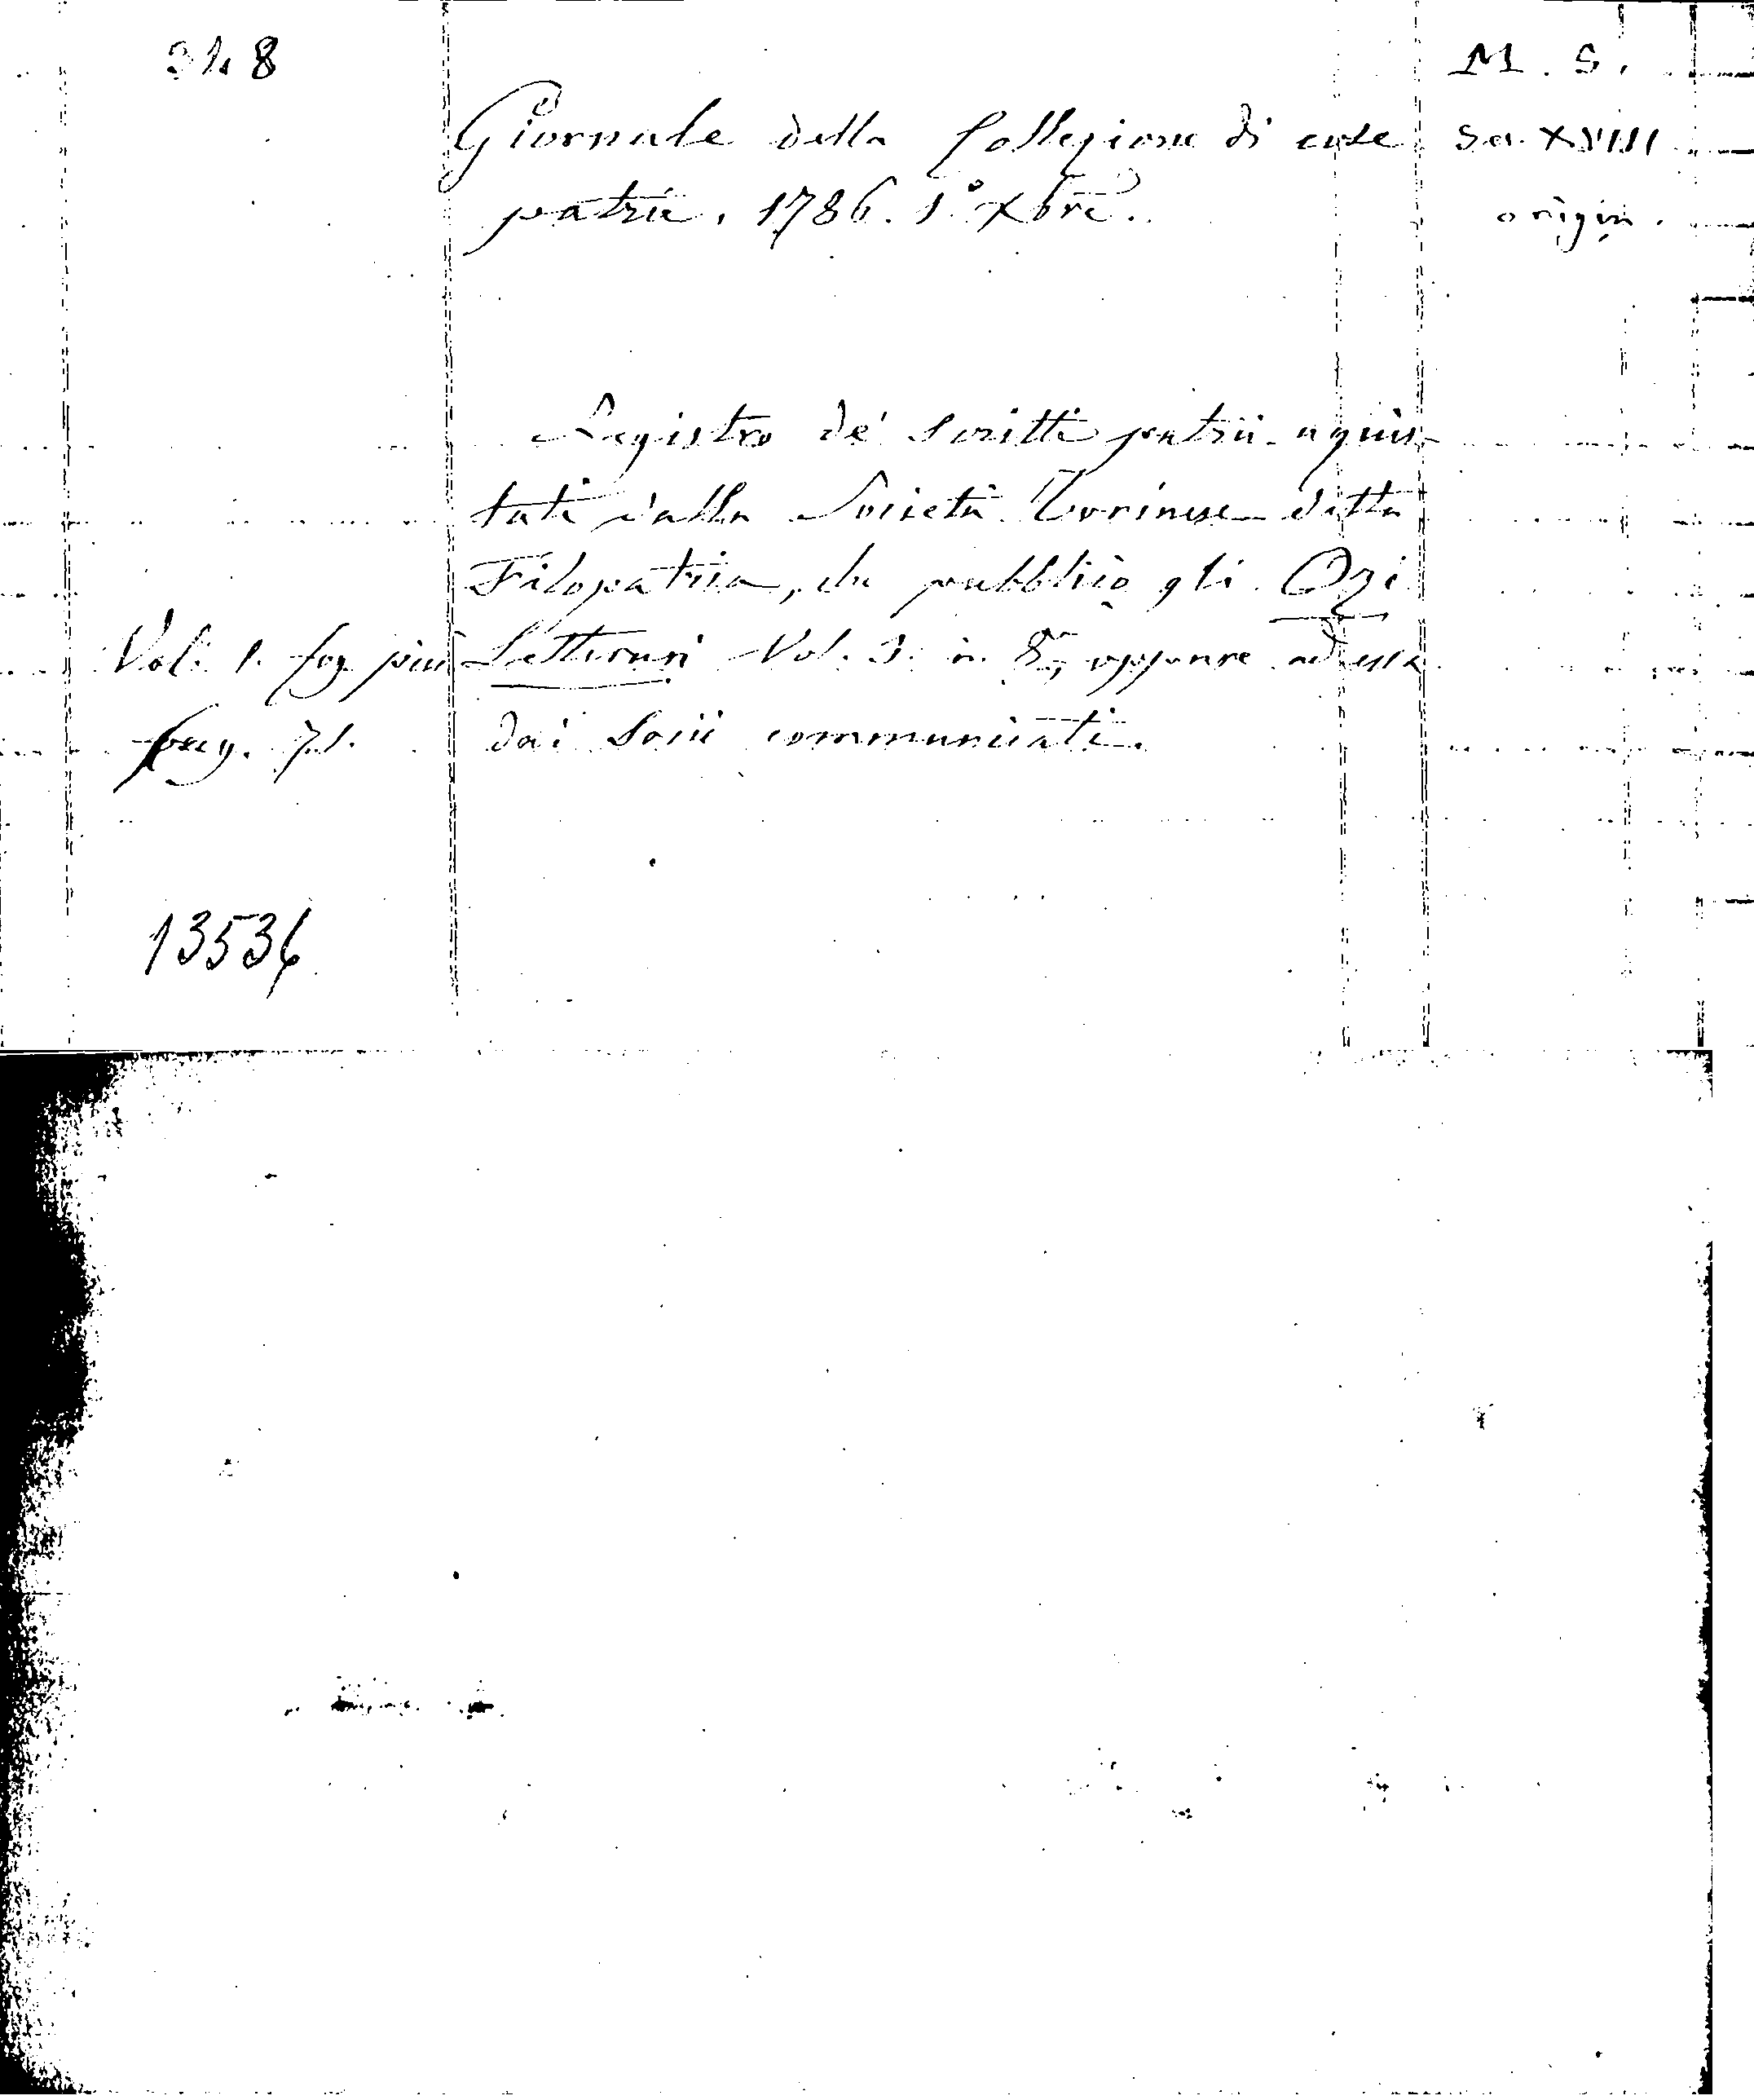 348
M. S.
Giornale della Collezione di cose
Sec. XVIII
patrie. 1786. 1.° Xbre.
origin.
Registro de' scritti patrii acquis-
tati dalla Società Torinese detta
Filopatria, che pubblicò gli Ozi
Vol. 1. fog. picc.
Letterari Vol. 3. in 8.°, oppure ad essa
pag. 71.
dai Socii communicati.
13536